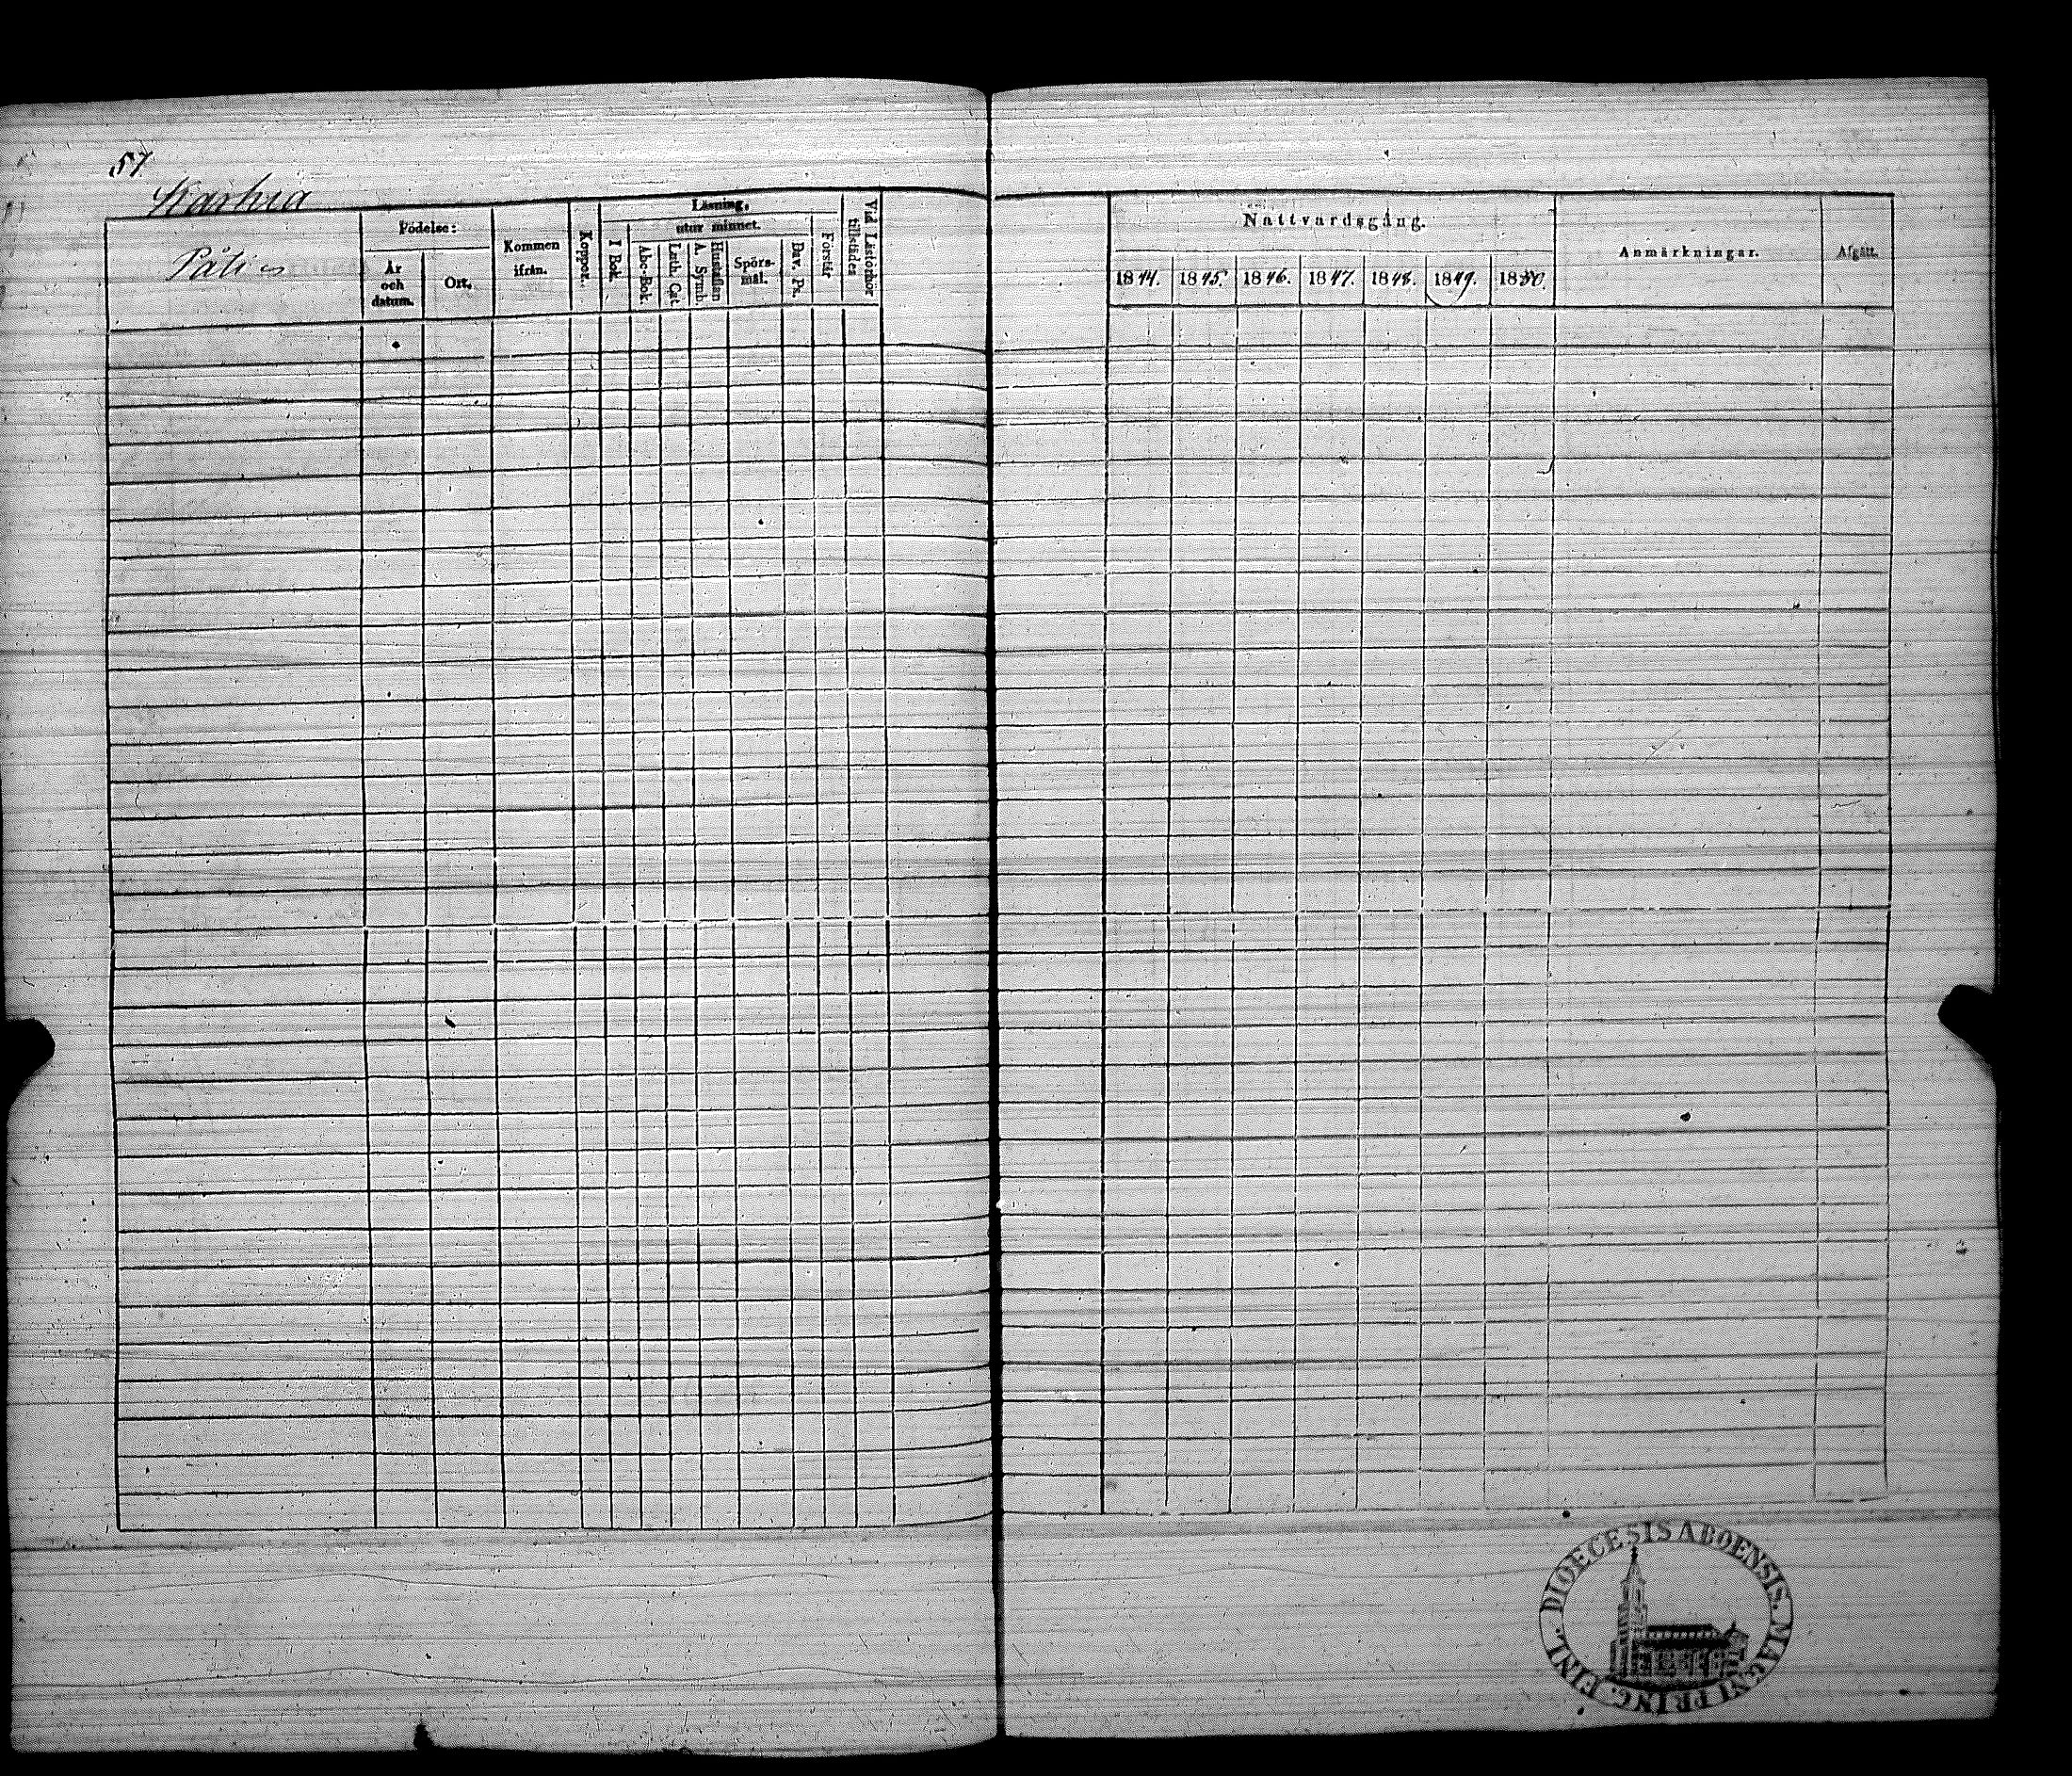 57
Karhia
Påti es
Födelse:
År
och
datum.
Ort.
Kommen
ifrån.
Koppor.
Läsning,
I Bok.
utur minnet.
Abc-Bok.
Luth. Cat.
Hustaflan
A. Symb.
Spörs-
mål.
Dav. Ps.
Förstår
Vid Läseförhör
tillstädes
Nattvardsgång.
1844.
1845.
1846.
1847.
1848.
1849.
1850.
Anmärkningar.
Afgått.
DIOECESIS ABOENSIS. MAGNI PRINC. FINL.